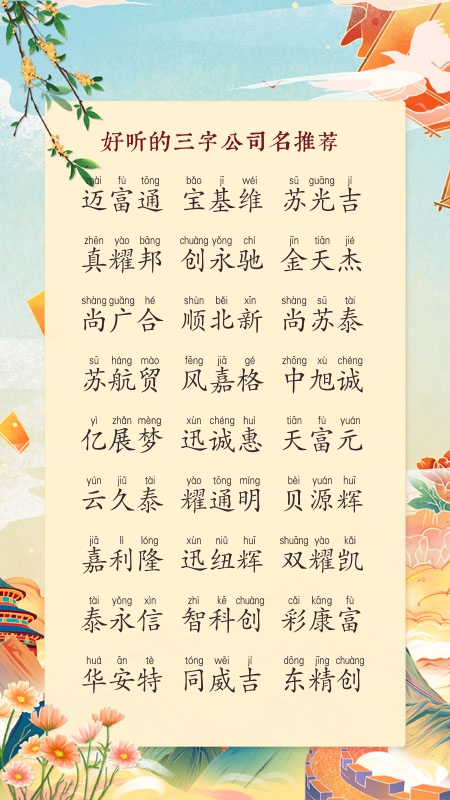 好听的三字公司名推荐
mài fù tōng bǎo jī wéi sū guāng jí
迈富通 宝基维 苏光吉
zhēn yào bāng chuàng yǒng chí jīn tiān jié
真耀邦 创永驰 金天杰
shàng guǎng hé shùn běi xīn shàng sū tài
尚广合 顺北新 尚苏泰
sū háng mào fēng jiā gé zhōng xù chéng
苏航贸 风嘉格 中旭诚
yì zhǎn mèng xùn chéng huì tiān fù yuán
亿展梦 迅诚惠 天富元
yún jiǔ tài yào tōng míng bèi yuán huī
云久泰 耀通明 贝源辉
jiā lì lóng xùn niǔ huī shuāng yào kǎi
嘉利隆 迅纽辉 双耀凯
tài yǒng xìn zhì kē chuàng cǎi kāng fù
泰永信 智科创 彩康富
huá ān tè tóng wēi jí dōng jīng chuàng
华安特 同威吉 东精创